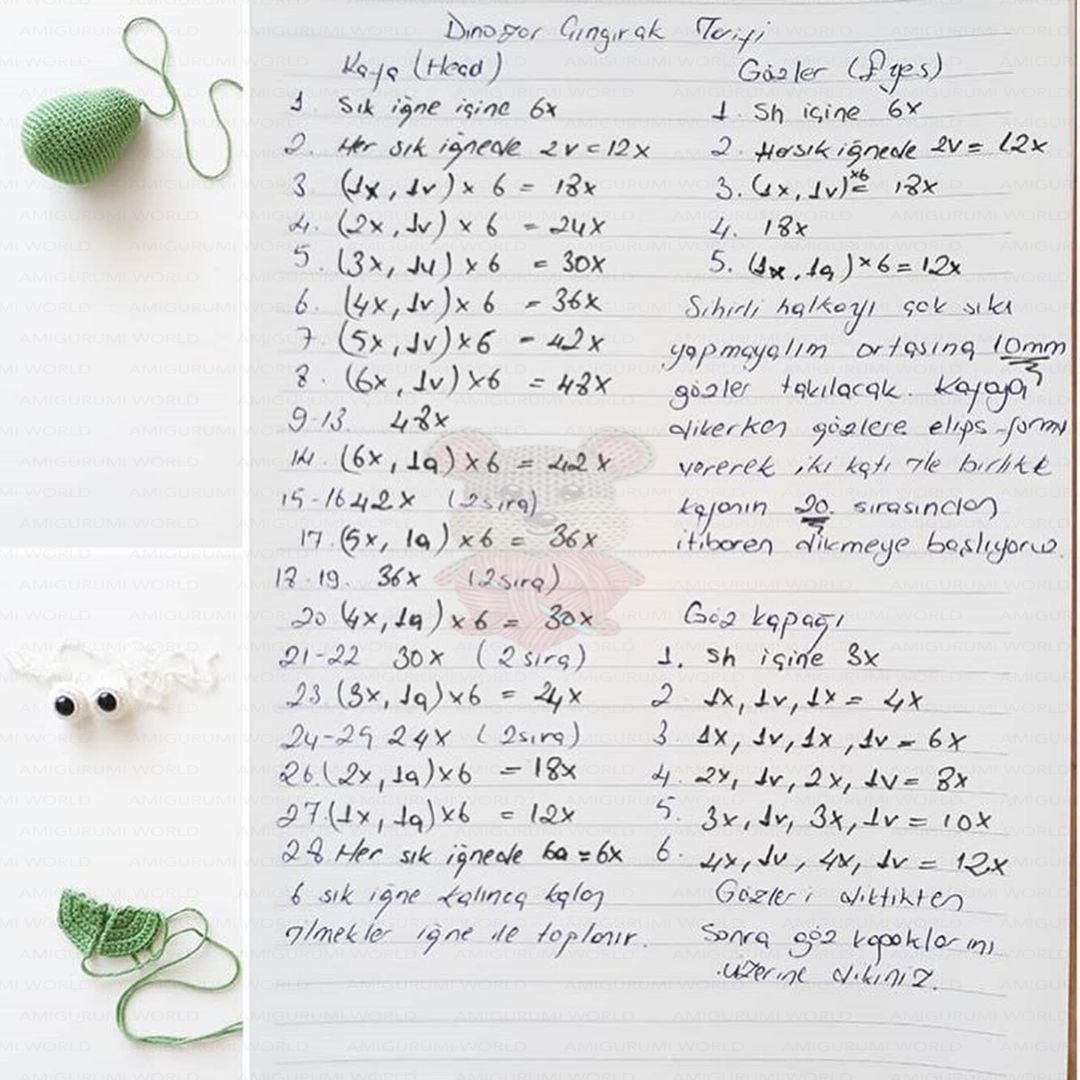 Dinozor Çıngırak Tarifi
Kafa (Head)
1. Sık iğne içine 6x
2. Her sık iğnede 2v = 12x
3. (1x, 1v) x 6 = 18x
4. (2x, 1v) x 6 = 24x
5. (3x, 1v) x 6 = 30x
6. (4x, 1v) x 6 = 36x
7 (5x, 1v) x 6 = 42x
8. (6x, 1v) x 6 = 48x
9-13. 48x
14. (6x, 1a) x 6 = 42x
15-16 42x (2 sıra)
17. (5x, 1a) x 6 = 36x
18-19. 36x (2 sıra)
20 (4x, 1a) x 6 = 30x
21-22 30x (2 sıra)
23. (3x, 1a) x 6 = 24x
24-25 24x (2 sıra)
26. (2x, 1a) x 6 = 18x
27. (1x, 1a) x 6 = 12x
28. Her sık iğnede 6a = 6x
6 sık iğne kalınca kalan
ilmekler iğne ile toplanır.
Gözler (Eyes)
1. Sh içine 6x
2. Her sık iğnede 2v = 12x
3. (1x, 1v) x6 = 18x
4. 18x
5. (1x, 1a) x 6 = 12x
Sihirli halkayı çok sıkı
yapmayalım ortasına 10mm
gözler takılacak. Kafaya
dikerken gözlere elips formu
vererek, iki katı ile birlikte
kafanın 20. sırasından
itibaren dikmeye başlıyoruz.
Göz kapağı
1. Sh içine 3x
2. 1x, 1v, 1x = 4x
3. 1x, 1v, 1x, 1v = 6x
4. 2x, 1v, 2x, 1v = 8x
5. 3x, 1v, 3x, 1v = 10x
6. 4x, 1v, 4x, 1v = 12x
Gözleri diktikten
sonra göz kapaklarını
üzerine dikiniz.
AMIGURUMI WORLD